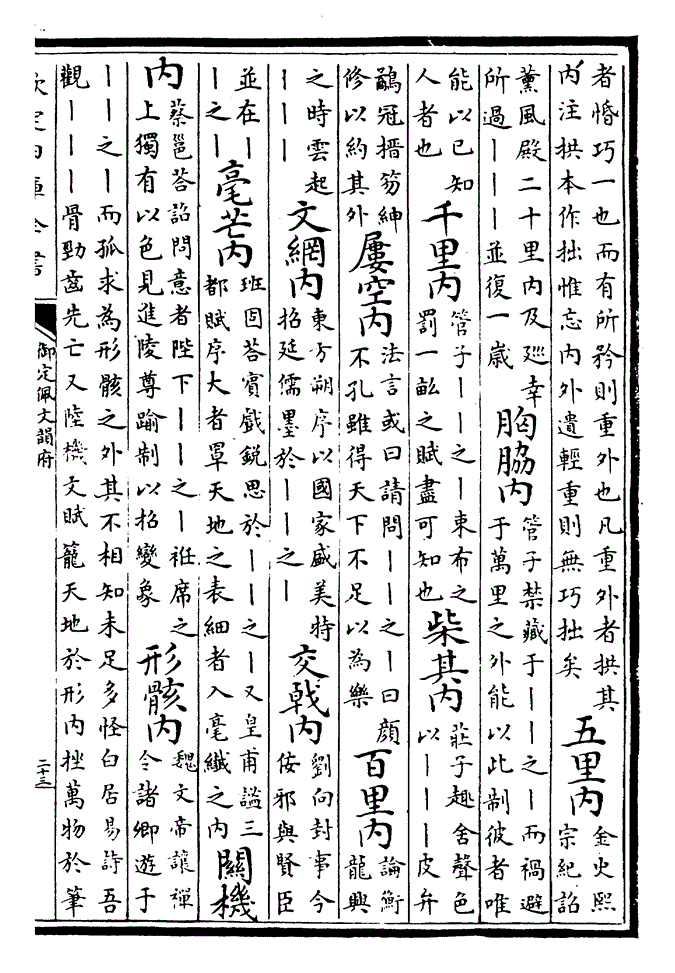 者惛巧一也而有所矜則重外也凡重外者拱其
内注拱本作拙惟忘内外遺輕重則無巧拙矣
五里内
金史熙
宗紀詔
薰風殿二十里内及廵幸
所過｜｜｜並復一歳
胸脇内
管子禁藏于｜｜之｜而禍避
于萬里之外能以此制彼者唯
能以已知
人者也
千里内
管子｜｜之｜束布之
罰一畝之賦盡可知也
柴其内
莊子趣舍聲色
以｜｜｜皮弁
鷸冠搢笏紳
修以約其外
屢空内
法言或曰請問｜｜之｜曰顔
不孔雖得天下不足以為樂
百里内
論衡
龍興
之時雲起
｜｜｜
文網内
東方朔序以國家盛美特
招延儒墨於｜｜之｜
交戟内
劉向封事今
佞邪與賢臣
並在｜
｜之｜
毫芒内
班固荅賓戲鋭思於｜｜之｜又皇甫謐三
都賦序大者罩天地之表細者入毫纖之内
關機
内
蔡邕荅詔問意者陛下｜｜之｜袵席之
上獨有以色見進陵尊踰制以招變象
形骸内
魏文帝讓禪
令諸卿遊于
｜｜之｜而孤求為形骸之外其不相知未足多怪白居易詩吾
觀｜｜｜骨勁齒先亡又陸機文賦籠天地於形内挫萬物於筆
欽定四庫全書
御定佩文韻府
二十三